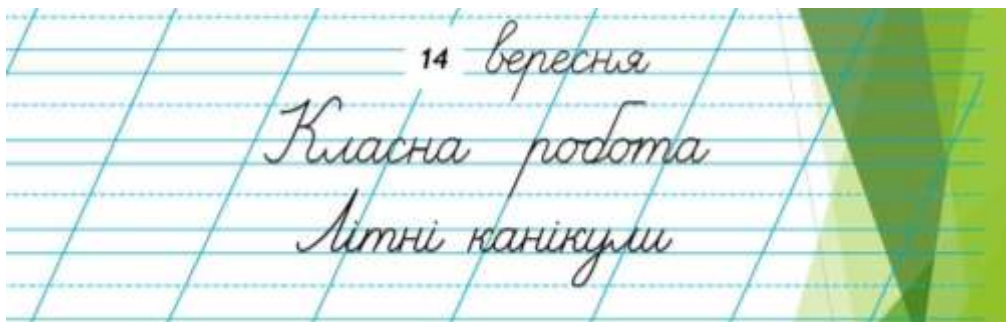 14 вересня
Класна робота
Літні канікули